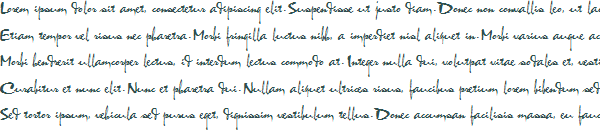 Lorem ipsum dolor sit amet, consectetur adipiscing elit. Suspendisse ut justo diam. Donec non convallis leo, ut la
Etiam tempor vel risus nec pharetra. Morbi fringilla luctus nibh, a imperdiet nisl aliquet in. Morbi varius augue ac
Morbi hendrerit ullamcorper lectus, id interdum lectus commodo at. Integer nulla dui, volutpat vitae sodales et, vesti
Curabitur et nunc elit. Nunc et pharetra dui. Nullam aliquet ultrices risus, faucibus pretium lorem bibendum sed
Sed tortor ipsum, vehicula sed purus eget, dignissim vestibulum tellus. Donec accumsan facilisis massa, eu fauc